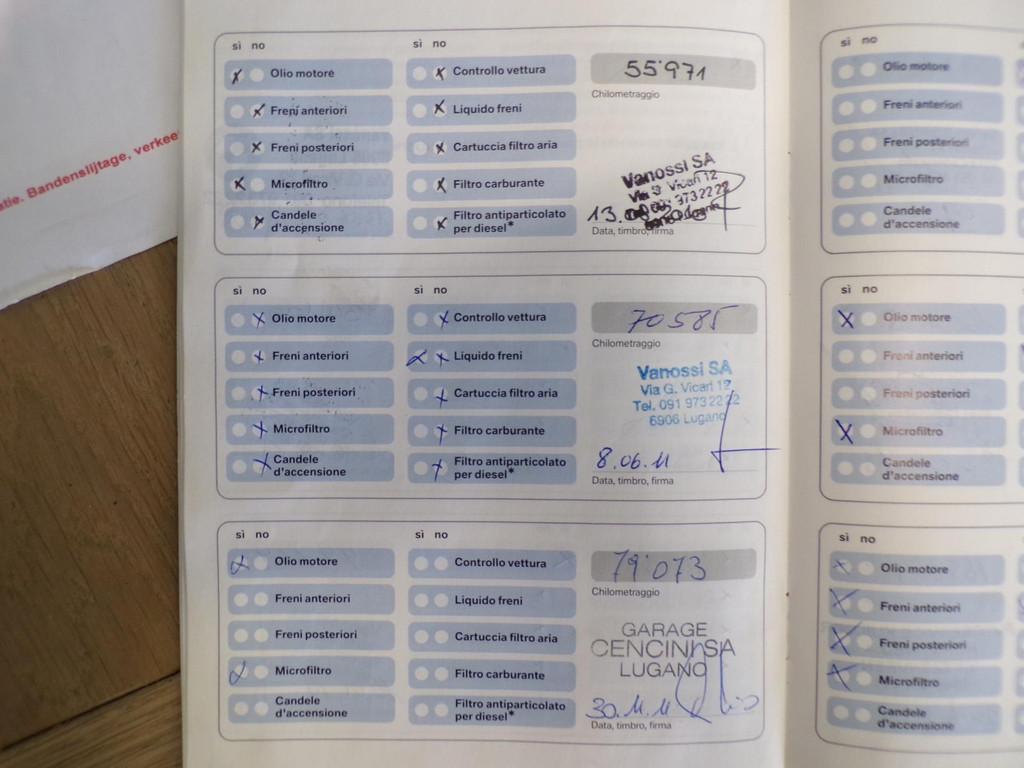 tie. Bandenslijtage, verkee
sì no
sì no
Olio motore
Controllo vettura
55'971
Chilometraggio
Freni anteriori
Liquido freni
Freni posteriori
Cartuccia filtro aria
Microfiltro
Filtro carburante
Candele
d'accensione
Filtro antiparticolato
per diesel*
Vanossi SA
Via G. Vicari 12
091 973 22 22
13.
Data, timbro, firma
sì no
sì no
Olio motore
Controllo vettura
70585
Chilometraggio
Freni anteriori
Liquido freni
Freni posteriori
Cartuccia filtro aria
Microfiltro
Filtro carburante
Candele
d'accensione
Filtro antiparticolato
per diesel*
Vanossi SA
Via G. Vicari 12
Tel. 091 973 22 22
6906 Lugano
8.06.11
Data, timbro, firma
sì no
sì no
Olio motore
Controllo vettura
79'073
Chilometraggio
Freni anteriori
Liquido freni
Freni posteriori
Cartuccia filtro aria
Microfiltro
Filtro carburante
Candele
d'accensione
Filtro antiparticolato
per diesel*
GARAGE
CENCINI SA
LUGANO
30.11.11
Data, timbro, firma
sì no
Olio motore
Freni anteriori
Freni posteriori
Microfiltro
Candele
d'accensione
sì no
Olio motore
Freni anteriori
Freni posteriori
Microfiltro
Candele
d'accensione
sì no
Olio motore
Freni anteriori
Freni posteriori
Microfiltro
Candele
d'accensione